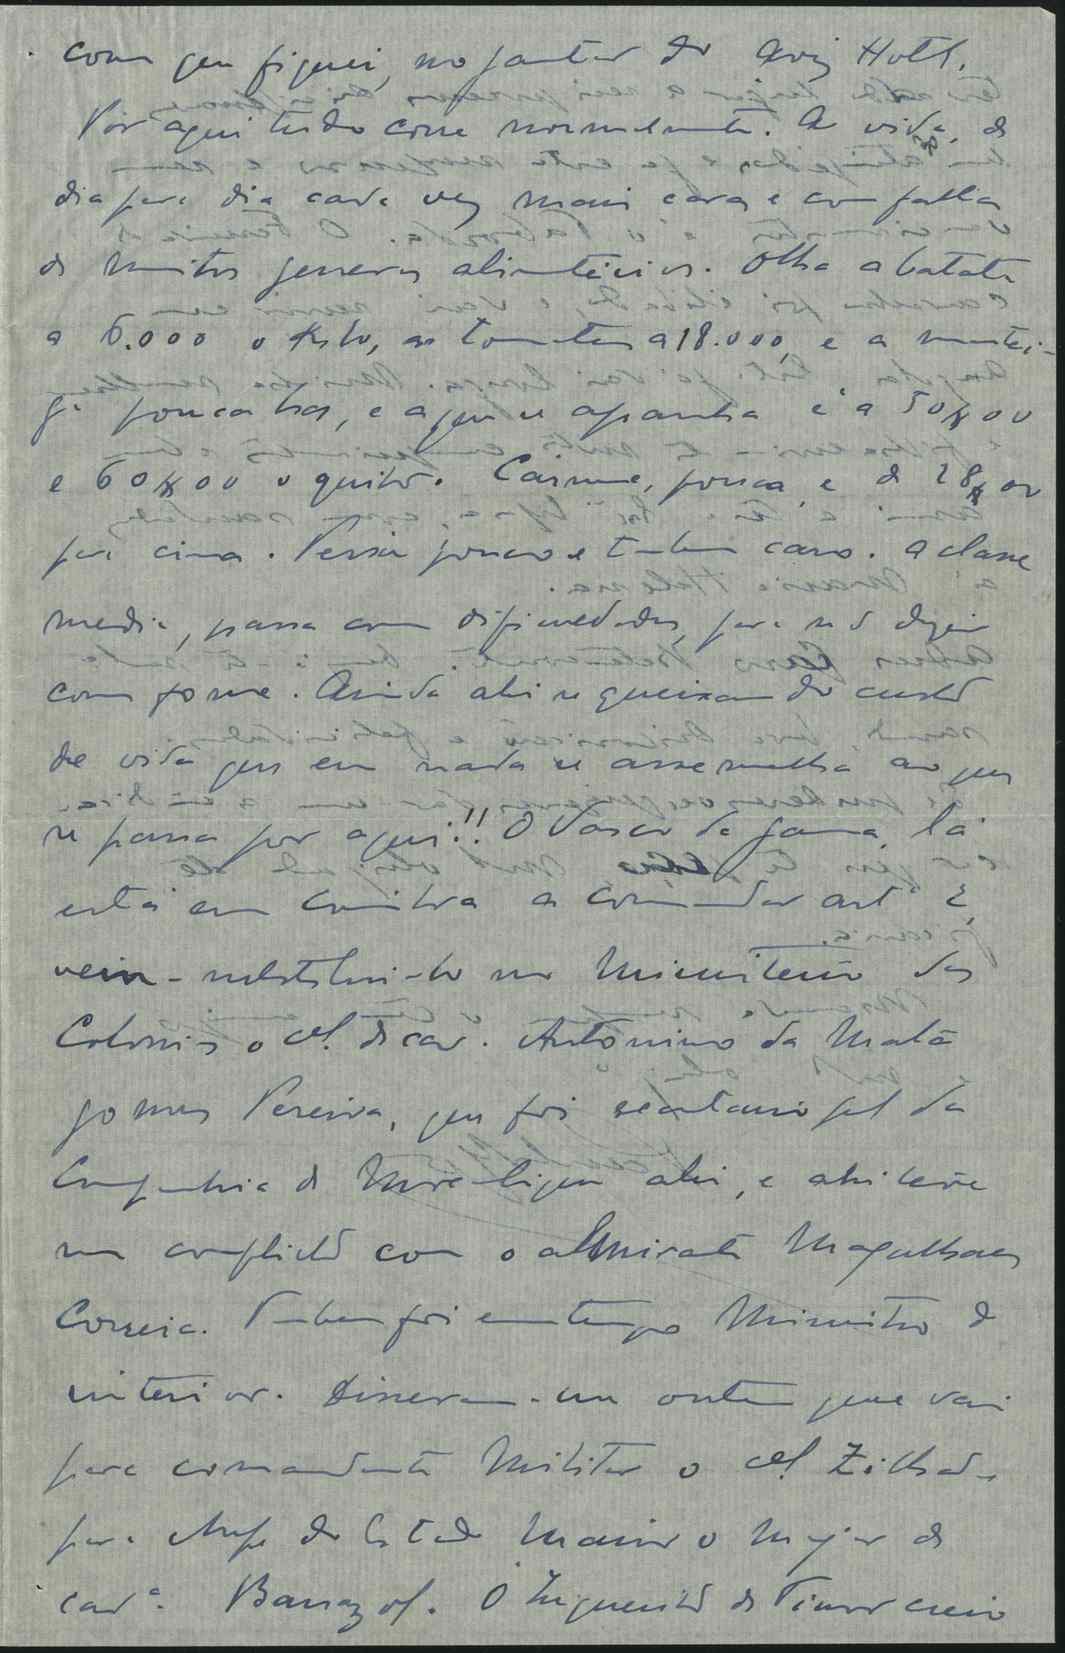 com que fiquei, no jantar do Aviz Hotel.
Por aqui tudo corre normalmente. A vida, de
dia para dia cada vez mais cara e com falta
de muitos generos alimenticios. Olha a batata
a 6.000 o kilo, os tomates a 18.000, e a mantei-
ga pouca ha, e a que se apanha é a 50$00
e 60$00 o quilo. Carne, pouca e de 28$00
para cima. Peixe pouco e tambem caro. A classe
media, passa com dificuldades, para não dizer
com fome. Ainda ahi se queixam do custo
de vida que em nada se assemelha ao que
se passa por aqui!! O Vasco da Gama, lá
está em Coimbra a comandar art. 2,
veiu - substitui-lo no Ministerio das
Colonias o Cel. de cav. Antonino da Mata
Gomes Pereira, que foi secretario gel da
Companhia de Moçambique ahi, e ahi teve
um conflicto com o almirante Magalhaes
Correia. Tambem foi em tempo Ministro do
interior. Disseram-me ontem que vai
para comandante Militar o Cel. Zilhão e
para chefe do Estado Maior o Major de
cava. O Inquerito de Timor creio